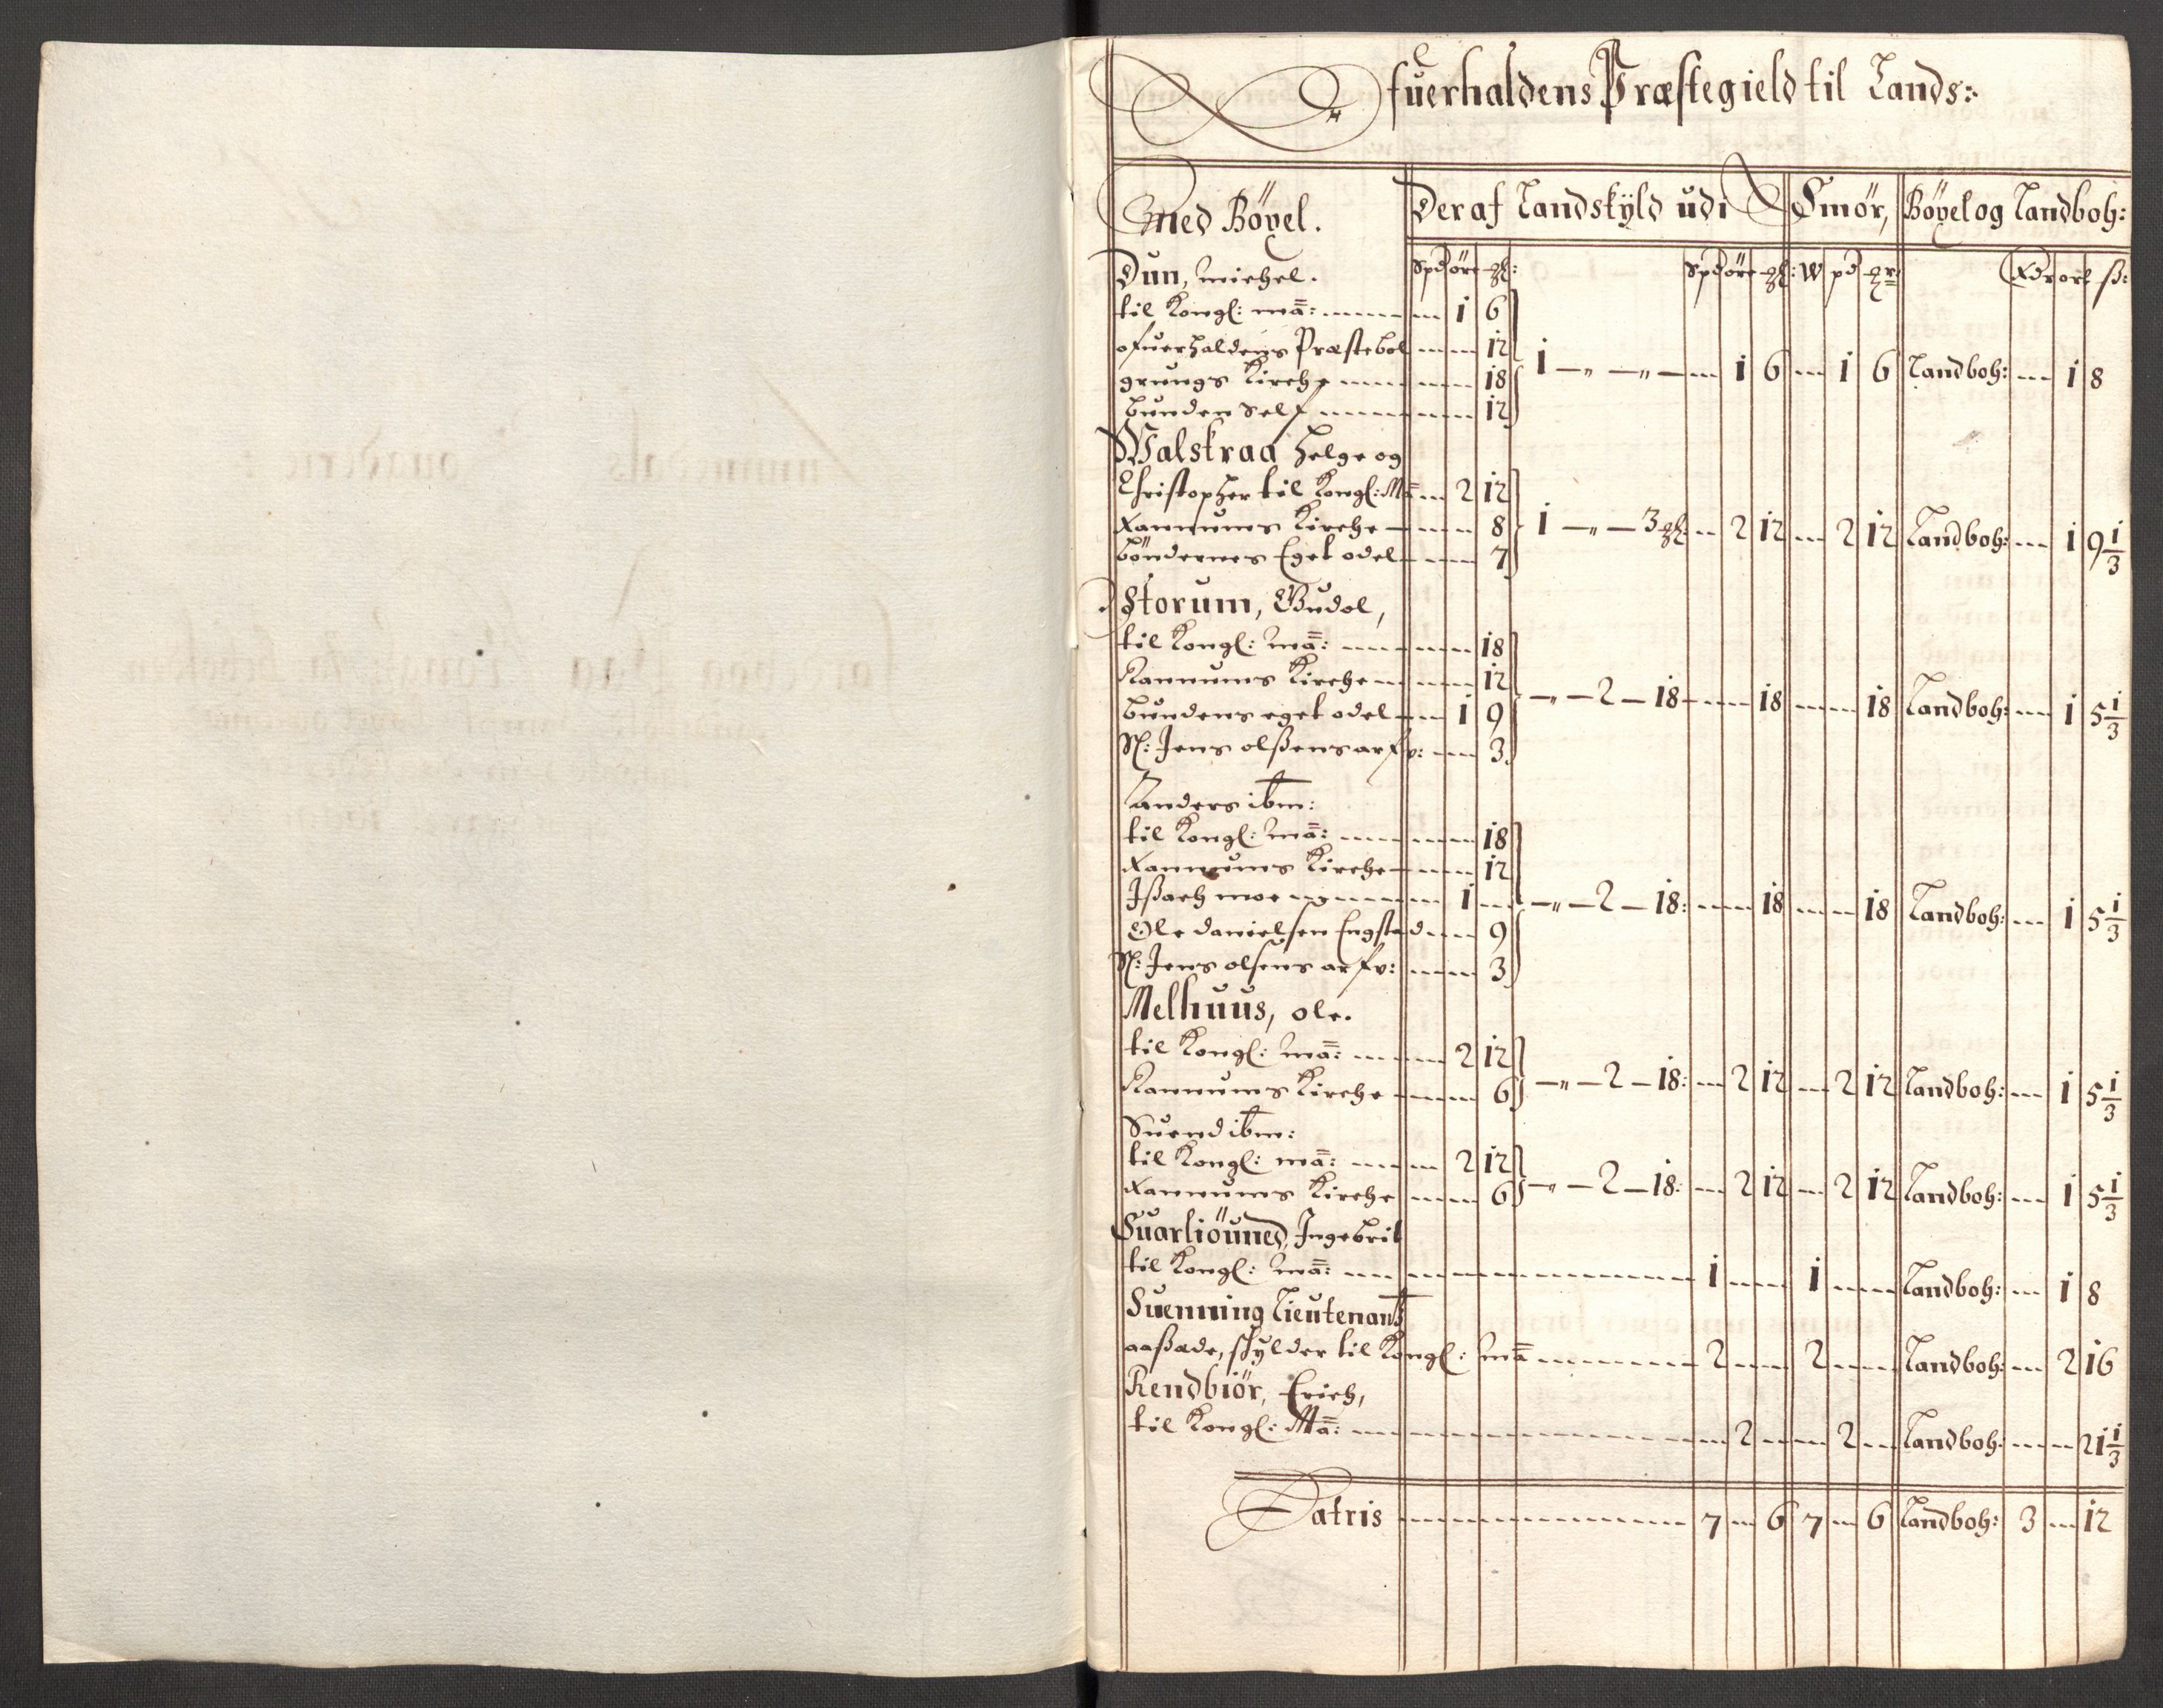 Ofuerhaldens Præstegield til Lands:
Med Böÿel. Der af Landskÿld udi Smör, Böÿel og Landboh:
Dun, Michel. Spd ör gl: Spd ör gl: W pd gr Rdr ort ß:
til Kongl: Ma: 1 6
ofuerhaldens Præstebol 12 1 — „ — „ — 1 6 1 6 Landboh: 1 8
grungs Kirche 18
bunden Self 12
Walskraa Helge og
Christopher til Kongl: Ma 2 12
Rannums Kirche 8 1 — „ — 3 gl: 2 12 2 12 Landboh: 1 9 1/3
böndernes Eget odel 7
Storum, Gudol,
til Kongl: Ma: 18
Rannums Kirche 12 — „ — 2 — 18 18 18 Landboh: 1 5 1/3
bundens eget odel 1 9
Sl: Jens olßens arfv: 3
Anders ibm:
til Kongl: Ma: 18
Rannums Kirche 12
Ißach moe 1 — „ — 2 — 18: 18 18 Landboh: 1 5 1/3
Ole danielsen Engstad 9
Sl: Jens olsens arfv: 3
Melhuus, ole.
til Kongl: Ma: 2 12
Rannums Kirche 6 — „ — 2 — 18: 2 12 2 12 Landboh: 1 5 1/3
Suend ibm:
til Kongl: Ma: 2 12
Rannums Kirche 6 — „ — 2 — 18: 2 12 2 12 Landboh: 1 5 1/3
Suarliöuned, Ingebrit
til Kongl: Ma: 1 1 Landboh: 1 8
Suenning Lieutenant
aaßæde, skÿlder til Kongl: Ma 2 2 Landboh: 2 16
Rendbiör, Erich,
til Kongl: Ma: 2 2 Landboh: 21 1/3
Latris 7 6 7 6 Landboh: 3 12